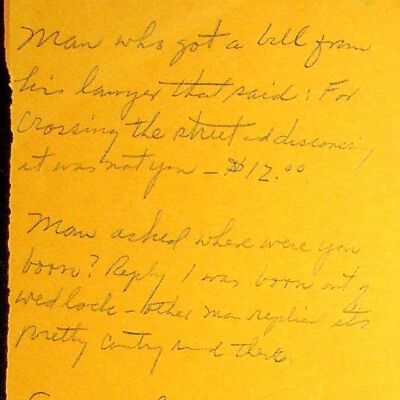 Man who got a bill from
his lawyer that said: For
Crossing the street and discovering
it was not you – $12.00
Man asked where were you
born? Reply I was born out of
wedlock – other man replied its
pretty cntry around there.